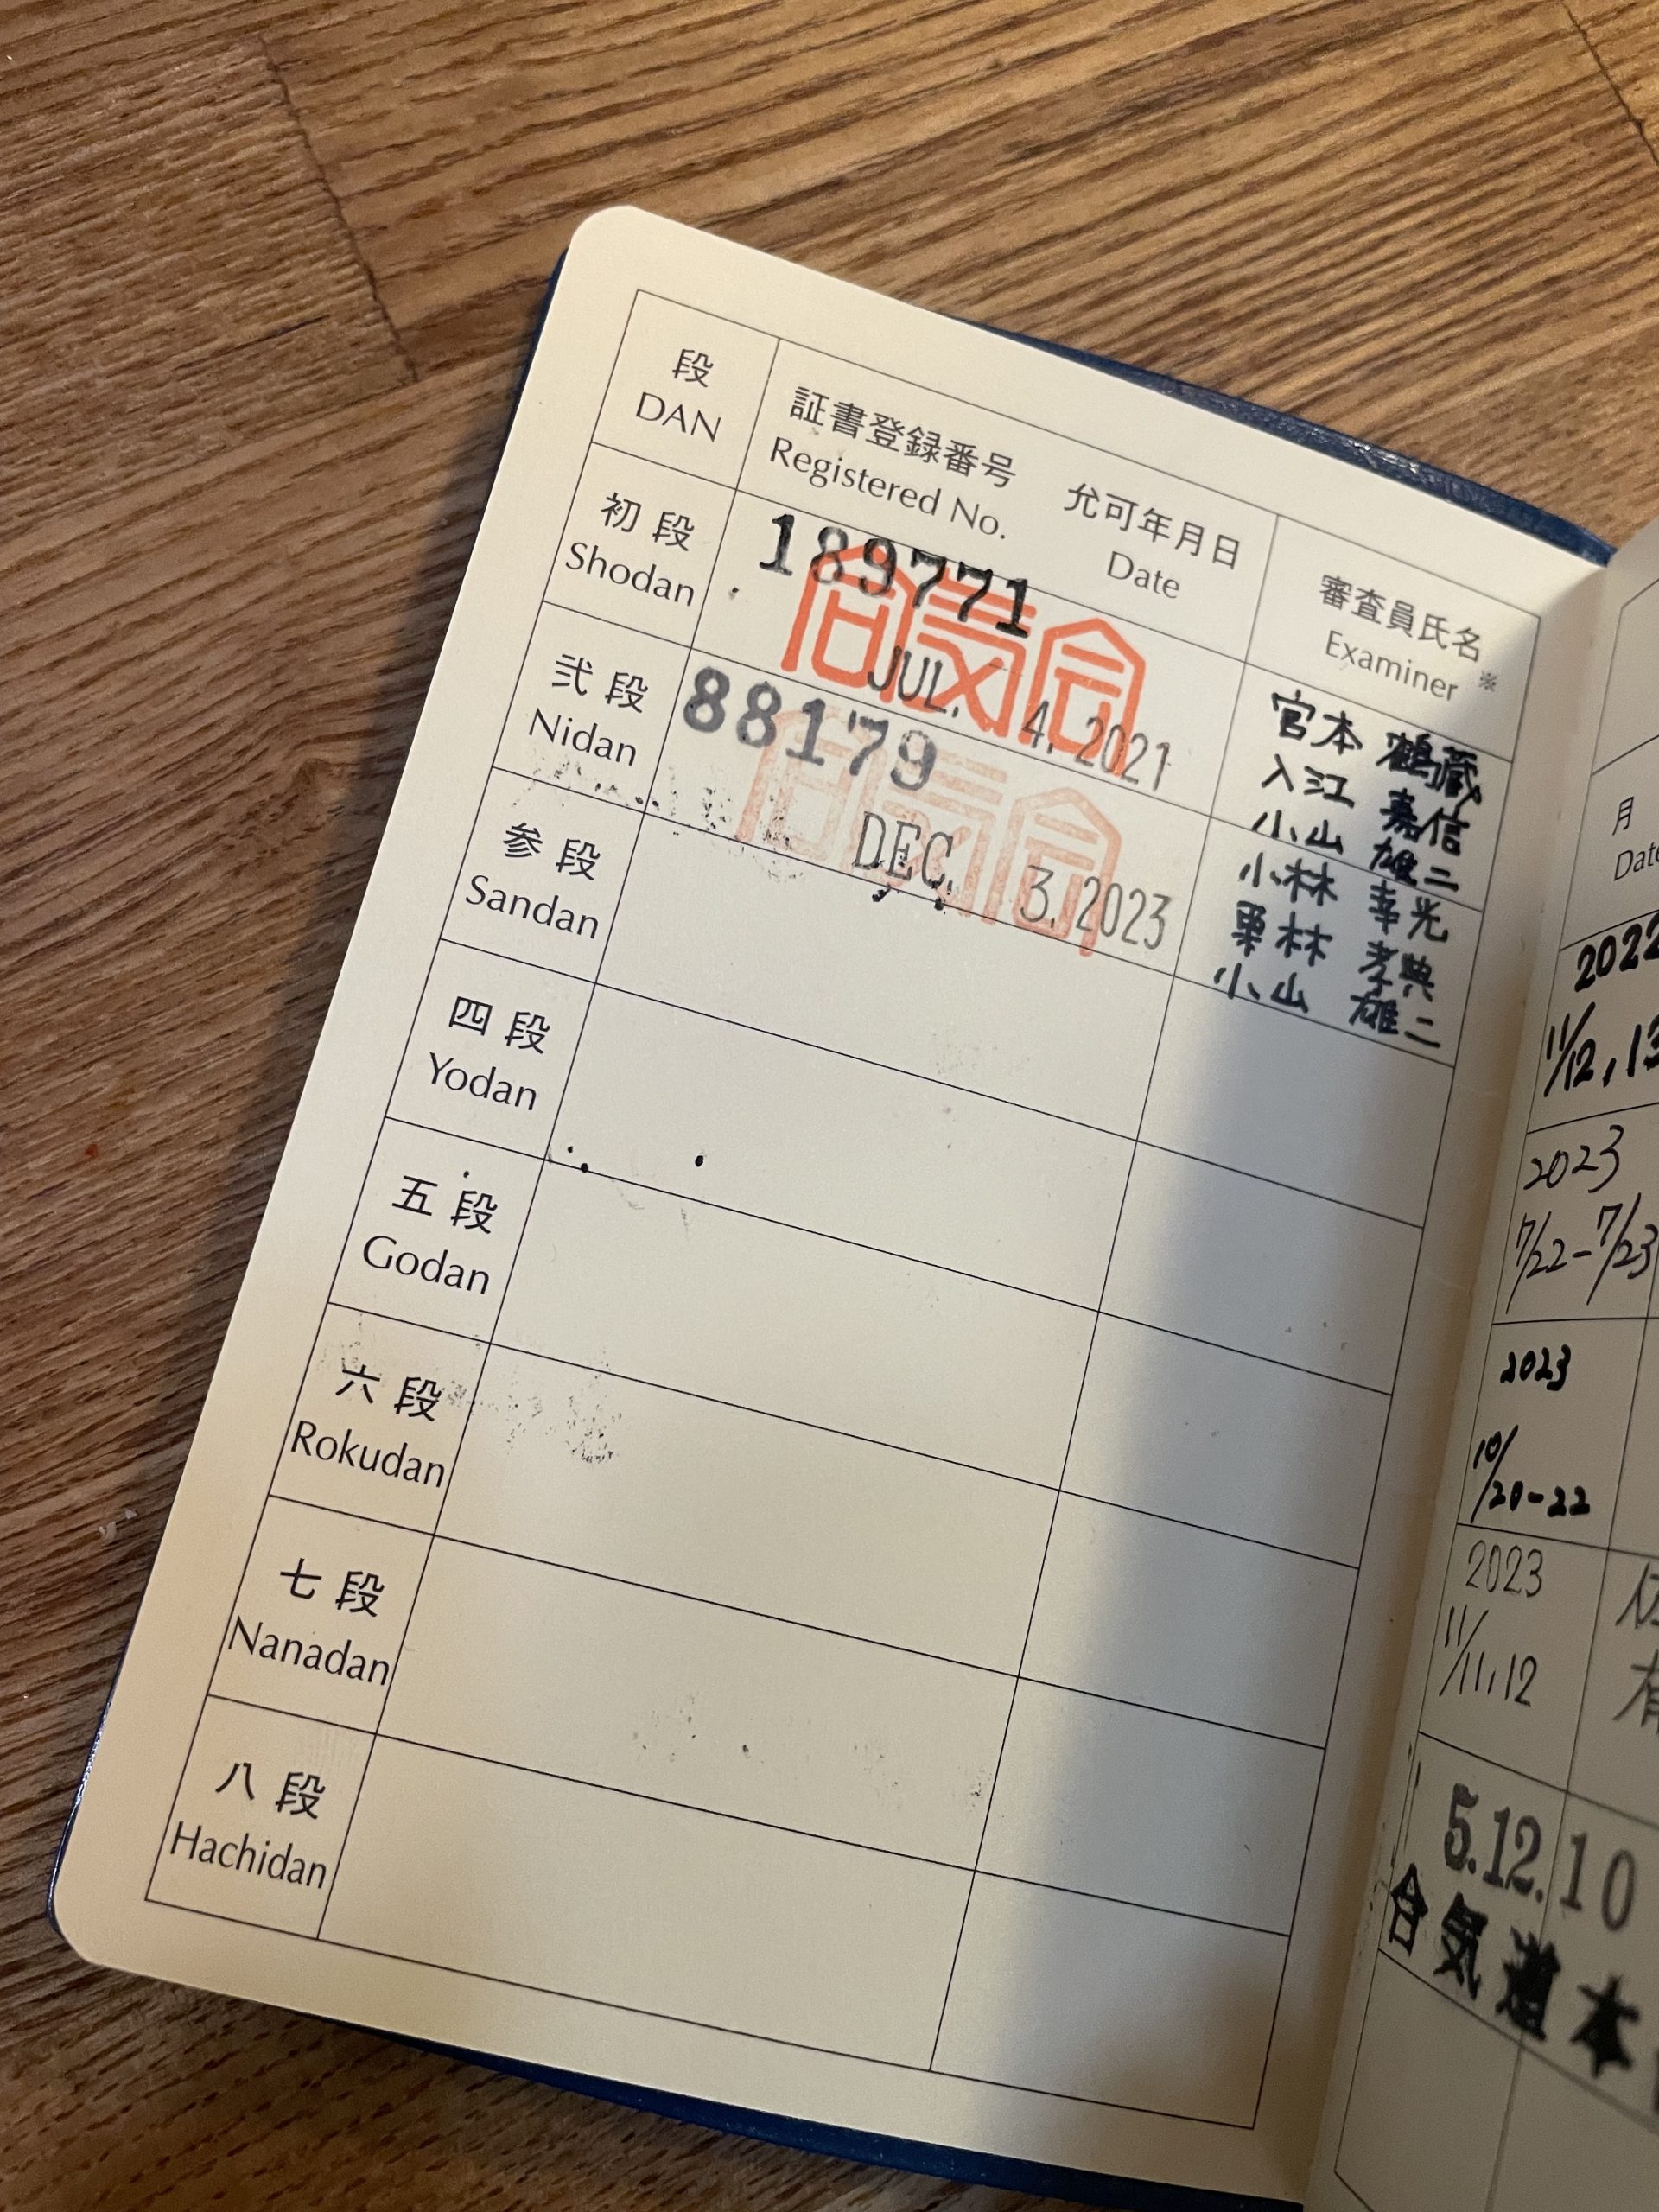 段
DAN
証書登録番号
Registered No.
允可年月日
Date
審査員氏名
Examiner ※
初段
Shodan
189771
合気会
JUL. 4. 2021
宮本 鶴蔵
入江 嘉信
小山 雄二
弐段
Nidan
88179
合気会
DEC. 3. 2023
小林 幸光
栗林 孝典
小山 雄二
参段
Sandan
四段
Yodan
五段
Godan
六段
Rokudan
七段
Nanadan
八段
Hachidan
月
Date
2022
11/12, 13
2023
7/22-7/23
2023
10/20-22
2023
11/11, 12
5.12.10
合気道本